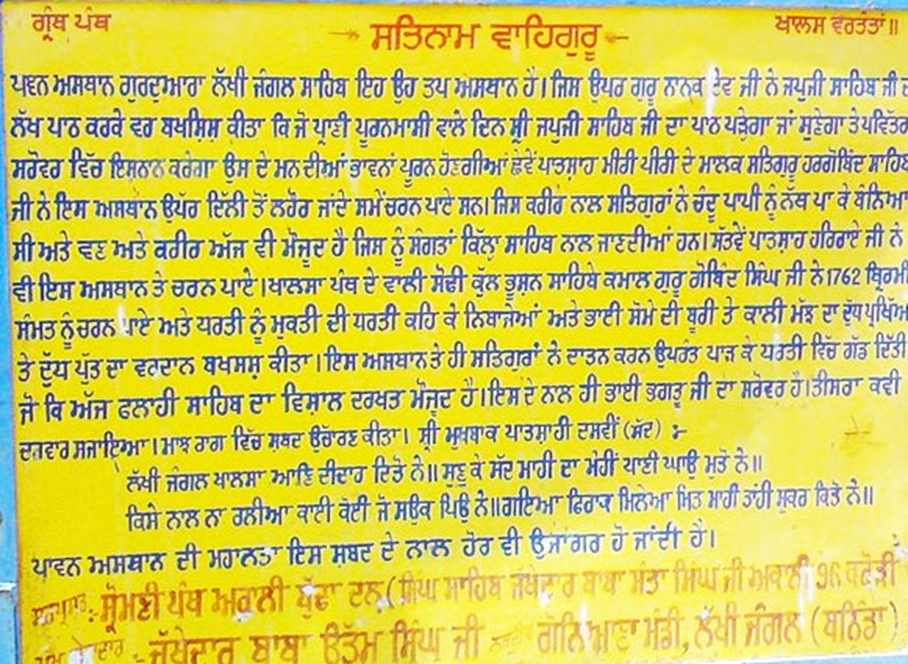 ਗ੍ਰੰਥ ਪੰਥ
ਸਤਿਨਾਮ ਵਾਹਿਗੁਰੂ
ਖਾਲਸ ਵਰਤੰਤਾਂ॥
ਪਾਵਨ ਅਸਥਾਨ ਗੁਰਦੁਆਰਾ ਲੱਖੀ ਜੰਗਲ ਸਾਹਿਬ ਇਹ ਉਹ ਤਪ ਅਸਥਾਨ ਹੈ। ਜਿਸ ਉਪਰ ਗੁਰੂ ਨਾਨਕ ਦੇਵ ਜੀ ਨੇ ਜਪੁਜੀ ਸਾਹਿਬ ਜੀ ਦ
ਲੱਖ ਪਾਠ ਕਰਕੇ ਵਰ ਬਖਸ਼ਿਸ਼ ਕੀਤਾ ਕਿ ਜੋ ਪ੍ਰਾਣੀ ਪੂਰਨਮਾਸੀ ਵਾਲੇ ਦਿਨ ਸ਼੍ਰੀ ਜਪੁਜੀ ਸਾਹਿਬ ਜੀ ਦਾ ਪਾਠ ਪੜੇਗਾ ਜਾਂ ਸੁਣੇਗਾ ਤੇ ਪਵਿੱਤਰ
ਸਰੋਵਰ ਵਿੱਚ ਇਸ਼ਨਾਨ ਕਰੇਗਾ ਉਸ ਦੇ ਮਨ ਦੀਆਂ ਭਾਵਨਾਂ ਪੂਰਨ ਹੋਣਗੀਆਂ ਛੇਵੇਂ ਪਾਤਸ਼ਾਹ ਮੀਰੀ ਪੀਰੀ ਦੇ ਮਾਲਕ ਸਤਿਗੁਰੂ ਹਰਗੋਬਿੰਦ ਸਾਹਿਬ
ਜੀ ਨੇ ਇਸ ਅਸਥਾਨ ਉੱਪਰ ਦਿੱਲੀ ਤੋਂ ਲਹੌਰ ਜਾਂਦੇ ਸਮੇਂ ਚਰਨ ਪਾਏ ਸਨ। ਜਿਸ ਕਰੀਰ ਨਾਲ ਸਤਿਗੁਰਾਂ ਨੇ ਚੰਦੂ ਪਾਪੀ ਨੂੰ ਨੱਥ ਪਾ ਕੇ ਬੰਨਿਆ
ਸੀ ਅਤੇ ਵਣ ਅਤੇ ਕਰੀਰ ਅੱਜ ਵੀ ਮੌਜੂਦ ਹੈ ਜਿਸ ਨੂੰ ਸੰਗਤਾਂ ਕਿੱਲਾ ਸਾਹਿਬ ਨਾਲ ਜਾਣਦੀਆਂ ਹਨ। ਸੱਤਵੇਂ ਪਾਤਸ਼ਾਹ ਹਰਿਰਾਏ ਜੀ ਨੇ
ਵੀ ਇਸ ਅਸਥਾਨ ਤੇ ਚਰਨ ਪਾਏ। ਖਾਲਸਾ ਪੰਥ ਦੇ ਵਾਲੀ ਸੋਢੀ ਕੁੱਲ ਭੂਸ਼ਨ ਸਾਹਿਬੇ ਕਮਾਲ ਗੁਰੂ ਗੋਬਿੰਦ ਸਿੰਘ ਜੀ ਨੇ 1762 ਬ੍ਰਿਕਮੀ
ਸੰਮਤ ਨੂੰ ਚਰਨ ਪਾਏ ਅਤੇ ਧਰਤੀ ਨੂੰ ਮੁਕਤੀ ਦੀ ਧਰਤੀ ਕਹਿ ਕੇ ਨਿਬਾਜੇਆਂ ਅਤੇ ਭਾਈ ਸੋਮੇ ਦੀ ਬੂਰੀ ਤੇ ਕਾਲੀ ਮੱਝ ਦਾ ਦੁੱਧ
ਤੇ ਦੁੱਧ ਪੁੱਤ ਦਾ ਵਰਦਾਨ ਬਖਸਸ਼ ਕੀਤਾ। ਇਸ ਅਸਥਾਨ ਤੇ ਹੀ ਸਤਿਗੁਰਾਂ ਨੇ ਦਾਤਨ ਕਰਨ ਉਪਰੰਤ ਪਾੜ ਕੇ ਧਰਤੀ ਵਿੱਚ ਗੱਡ ਦਿੱਤੀ
ਜੋ ਕਿ ਅੱਜ ਫਲਾਹੀ ਸਾਹਿਬ ਦਾ ਵਿਸ਼ਾਲ ਦਰਖਤ ਮੌਜੂਦ ਹੈ। ਇਸ ਦੇ ਨਾਲ ਹੀ ਭਾਈ ਭਗਤੂ ਜੀ ਦਾ ਸਰੋਵਰ ਹੈ। ਤੀਸਰਾ ਕਵੀ
ਦਰਵਾਰ ਸਜਾਇਆ। ਮਾਝ ਰਾਗ ਵਿੱਚ ਸ਼ਬਦ ਉਚਾਰਣ ਕੀਤਾ। ਸ਼੍ਰੀ ਮੁਖਬਾਕ ਪਾਤਸ਼ਾਹੀ ਦਸਵੀਂ (ਸੱਦ) :-
ਲੱਖੀ ਜੰਗਲ ਖਾਲਸਾ ਆਣਿ ਦੀਦਾਰ ਦਿਤੋ ਨੇ॥ ਸੁਣ ਕੇ ਸੱਦ ਮਾਹੀ ਦਾ ਮੇਹੀਂ ਪਾਣੀ ਘਾਉ ਮੁਤੋ ਨੇ॥
ਕਿਸੇ ਨਾਲ ਨਾ ਰਲੀਆ ਕਾਈ ਕੋਈ ਜੋ ਸਉਕ ਪਿਓੁ ਨੇ॥ ਗਇਆ ਫਿਰਾਕ ਮਿਲੇਆ ਮਿਤ ਮਾਹੀ ਤਾਂਹੀ ਸ਼ੁਕਰ ਕਿਤੋ ਨੇ॥
ਪਾਵਨ ਅਸਥਾਨ ਦੀ ਮਹਾਨਤਾ ਇਸ ਸ਼ਬਦ ਦੇ ਨਾਲ ਹੋਰ ਵੀ ਉਜਾਂਗਰ ਹੋ ਜਾਂਦੀ ਹੈ।
ਸ਼੍ਰੋਮਣੀ ਪੰਥ ਅਕਾਲੀ ਬੁੱਢਾ ਦਲ (ਸਿੰਘ ਸਾਹਿਬ ਜਥੇਦਾਰ ਬਾਬਾ ਸੰਤਾ ਸਿੰਘ ਜੀ ਅਕਾਲੀ 96 ਕਰੋੜੀ
ਜੱਥੇਦਾਰ ਬਾਬਾ ਉੱਤਮ ਸਿੰਘ ਜੀ ਗੋਨਿਆਣਾ ਮੰਡੀ, ਲੱਖੀ ਜੰਗਲ (ਬਠਿੰਡਾ)